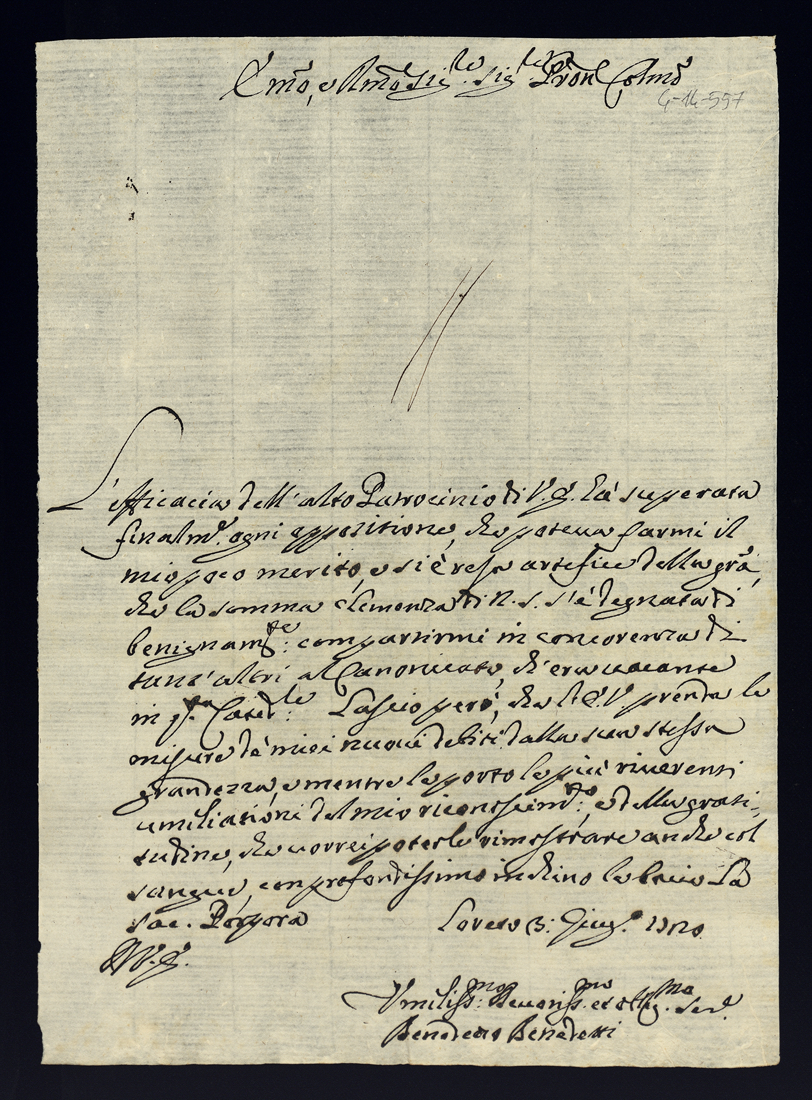 Em̃o, e Rm̃o Sig.re Sig.re Pron̄e Colm̃o
4-14-557
L'efficacia dell'alto Patrocinio di V. E. hà superata
finalm.e ogni oppositione, che poteua farmi il
mio poco merito, e si è resa artefice della grã,
che la somma clemenza di N. S. s'è degnata di
benignam.te compartirmi in concorenza di
tant'altri al Canonicato, ch'era uacante
in q.ta Cated.le Lascio però, che l'E. V. prenda le
misure de miei nuoui debiti dalla sua stessa
grandezza, e mentre le porto le più riuerenti
umiliationi del mio riconoscim.to, e della grati-
tudine, che uorrei poterle rimostrare anche col
sangue, con profondissimo inchino le bacio la
sac. Porpora
Loreto 3: Giug.o
D V. E.
Vmiliss.mo Deuotiss.mo et Oblig.mo Ser.e
Benedetto Benedetti